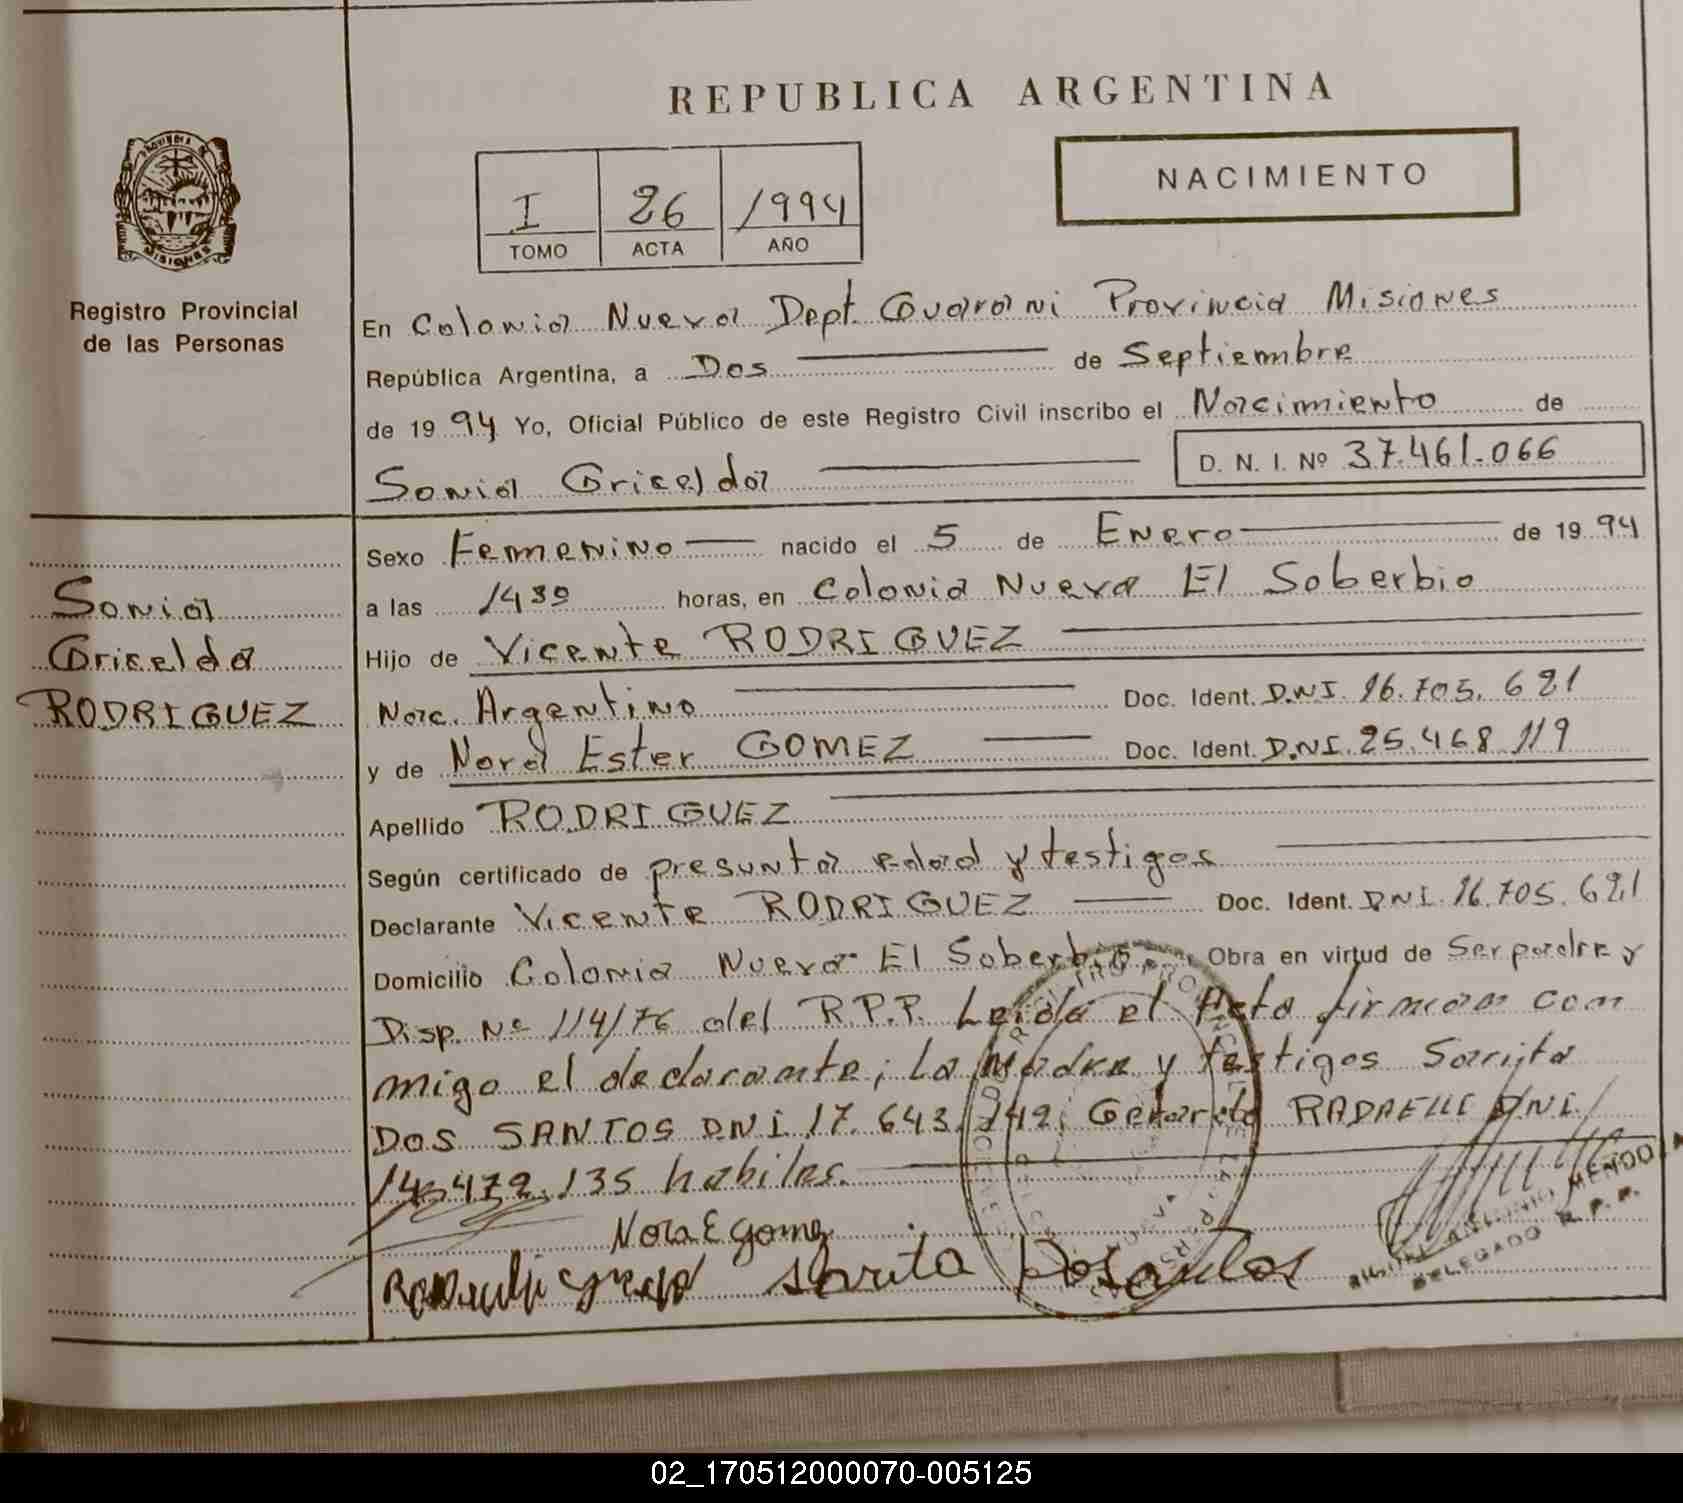 REPUBLICA ARGENTINA
NACIMIENTO
I 26 1994
TOMO ACTA AÑO
PROVINCIA DE
MISIONES
Registro Provincial
de las Personas
En Colonia Nueva Dept. Guarani Provincia Misiones
República Argentina, a Dos de Septiembre
de 19 94 Yo, Oficial Público de este Registro Civil inscribo el Nacimiento de
Sonia Griselda D. N. I. Nº 37.461.066
Sonia
Griselda
RODRIGUEZ
Sexo Femenino nacido el 5 de Enero de 19 94
a las 14 30 horas, en Colonia Nueva El Soberbio
Hijo de Vicente RODRIGUEZ
Nac. Argentino Doc. Ident. D.N.I. 16.705.621
y de Nora Ester GOMEZ Doc. Ident. D.N.I. 25.468.119
Apellido RODRIGUEZ
Según certificado de presunta edad y testigos
Declarante Vicente RODRIGUEZ Doc. Ident. DNI. 16.705.621
Domicilio Colonia Nueva El Soberbio Obra en virtud de Ser padre y
Disp. Nº 114/76 del R.P.P. Leida el Acta firman con
migo el declarante; La Madre y testigos Sarita
DOS SANTOS DNI 17.643.142; Gerardo RADAELLI DNI
14.472.135 habiles.
Nora E Gomez
Sarita Dos Santos
ANTONIO MENDO
DELEGADO R.P.P.
02_170512000070-005125